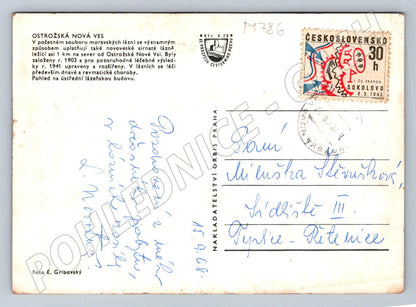 OSTROŽSKÁ NOVÁ VES
V početném souboru moravských lázní se významným
způsobem uplatňují také novoveské sirnaté lázně,
ležící asi 1 km na sever od Ostrožské Nové Vsi. Byly
založeny r. 1903 a pro pozoruhodné léčebné výsled-
ky r. 1941 upraveny a rozšířeny. V lázních se léčí
především dnavé a revmatické choroby.
Pohled na ústřední lázeňskou budovu.
M1786
ČESKOSLOVENSKO
30
h
ČS. PRAPOR
SOKOLOVO
8.3.1943
NAKLADATELSTVÍ ORBIS PRAHA
Pozdravení z mého
pobytu
v
15.9.68.
Paní
Miluška
Sídliště III.
Teplice - Řetenice
Foto E. Gribovský
POHLEDNICE -